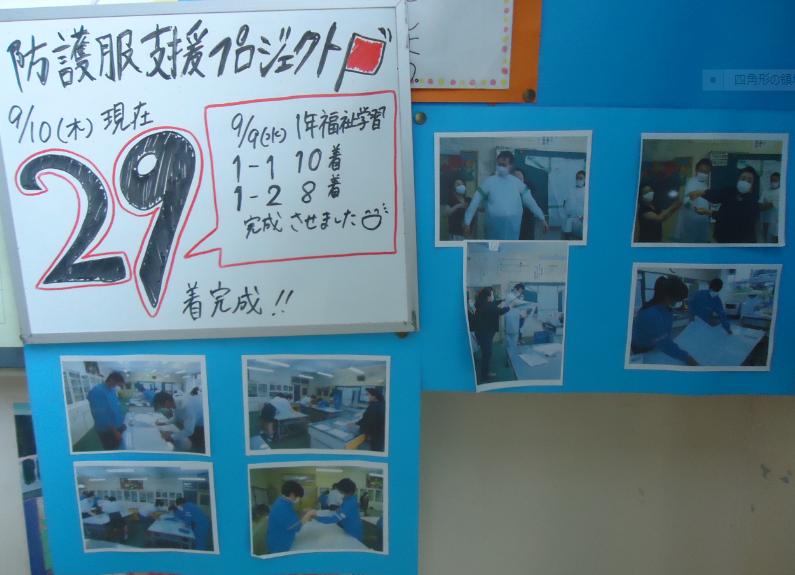 防護服支援プロジェクト
9/10(木)現在
29
着完成!!
9/9(水) 1年福祉学習
1-1 10着
1-2 8着
完成させました
四角形の領域